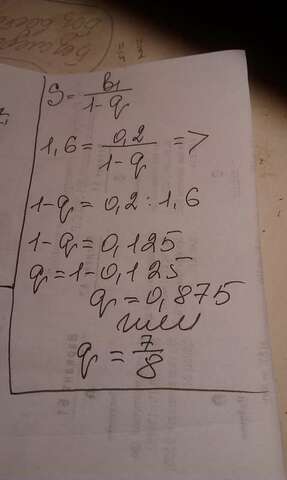 S = b₁/(1-q)
1,6 = 0,2/(1-q) =>
1-q = 0,2 : 1,6
1-q = 0,125
q = 1-0,125
q = 0,875
или
q = 7/8